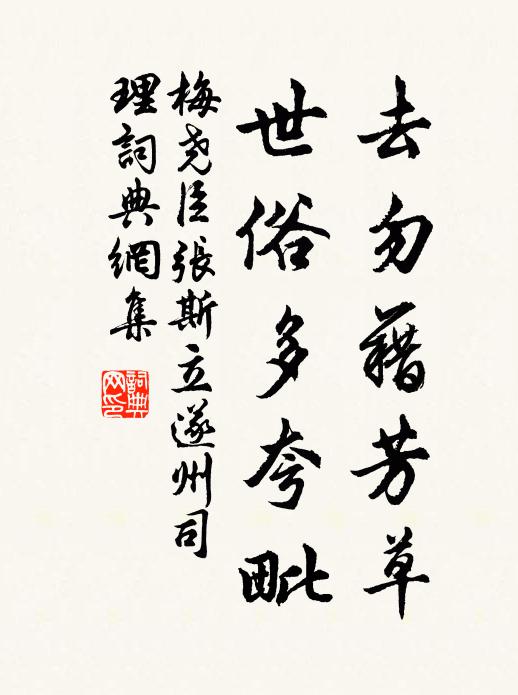 去勿藉芳草
世俗多夸毗
梅尧臣張斯立遂州司
理詞典網集
詞典
网印